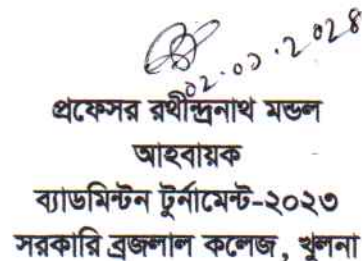 ০২.০১.২০২৪
প্রফেসর রথীন্দ্রনাথ মন্ডল
আহবায়ক
ব্যাডমিন্টন টুর্নামেন্ট-২০২৩
সরকারি ব্রজলাল কলেজ, খুলনা